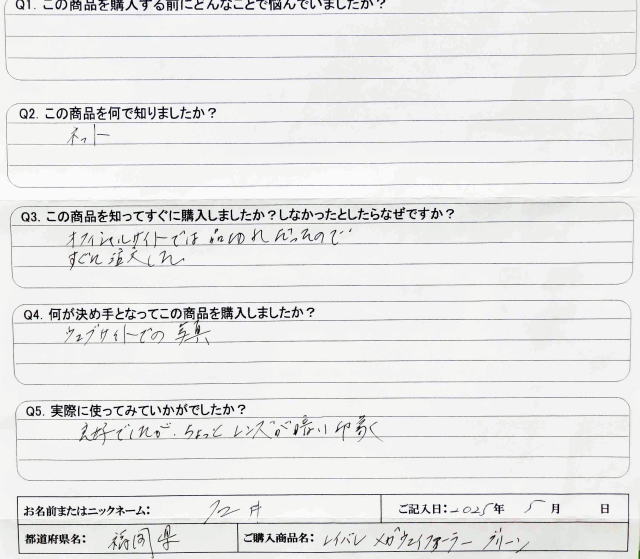 Q1. この商品を購入する前にどんなことで悩んでいましたか？
Q2. この商品を何で知りましたか？
ネット
Q3. この商品を知ってすぐに購入しましたか？しなかったとしたらなぜですか？
オフィシャルサイトでは品切れだったので
すぐに注文した
Q4. 何が決め手となってこの商品を購入しましたか？
ウェブサイトでの写真
Q5. 実際に使ってみていかがでしたか？
良好でしたが、ちょっとレンズが暗い印象
お名前またはニックネーム：
ご記入日：2025年 5月 日
都道府県名：福岡県
ご購入商品名：レイバン メガウェイファーラー グリーン